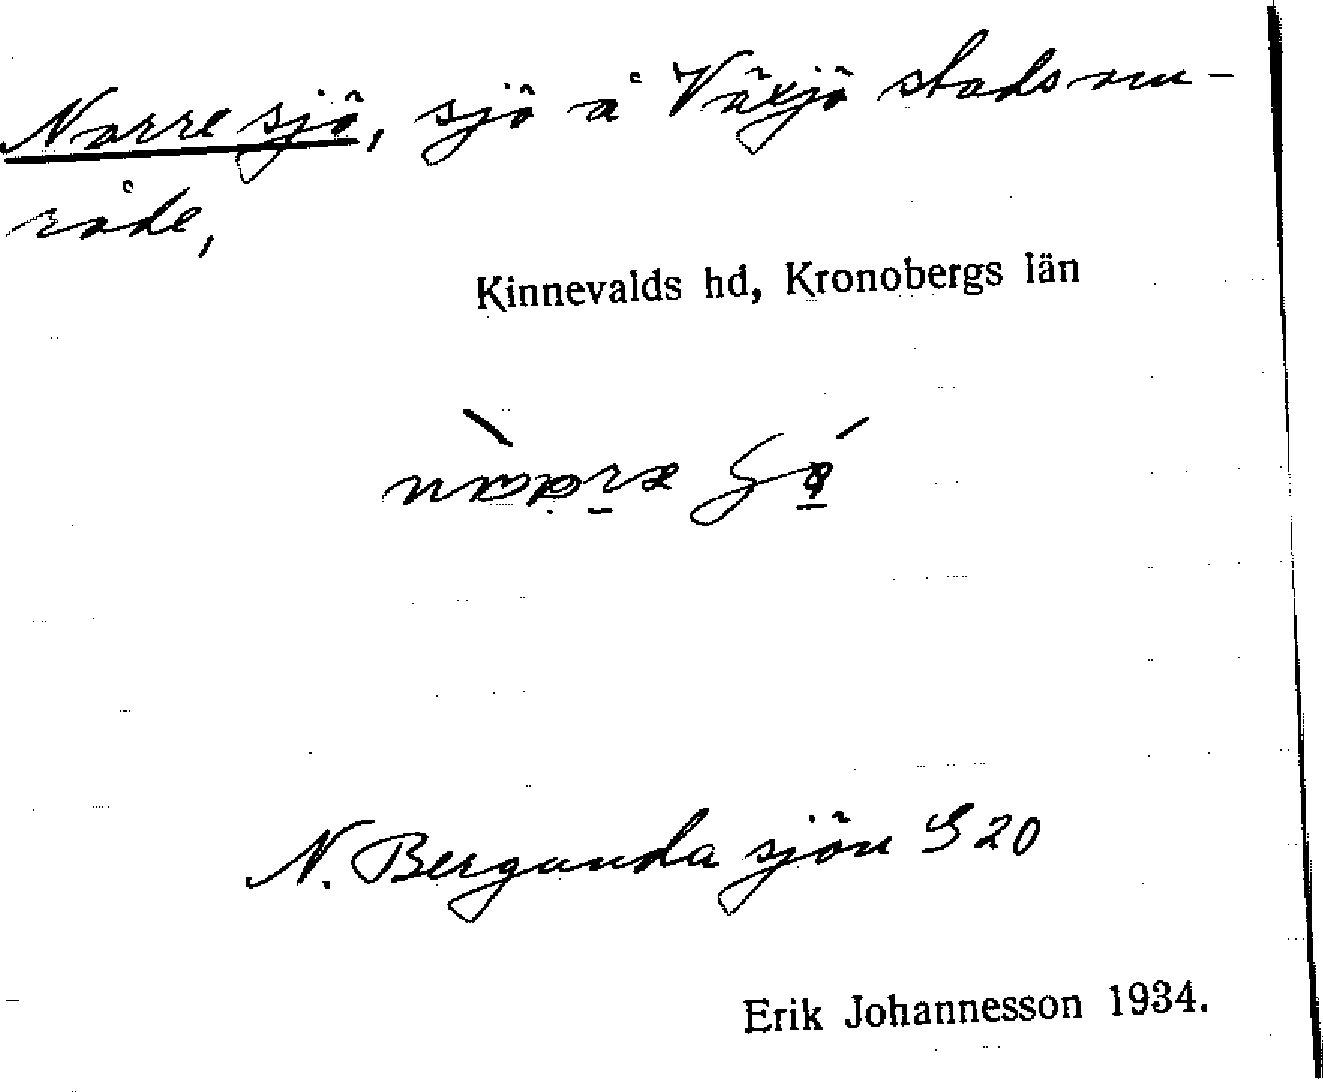 Norre sjö, sjö å Växjö stadsom-
råde,
Kinnevalds hd, Kronobergs län
N. Bergundasjön S 20
Erik Johannesson 1934.